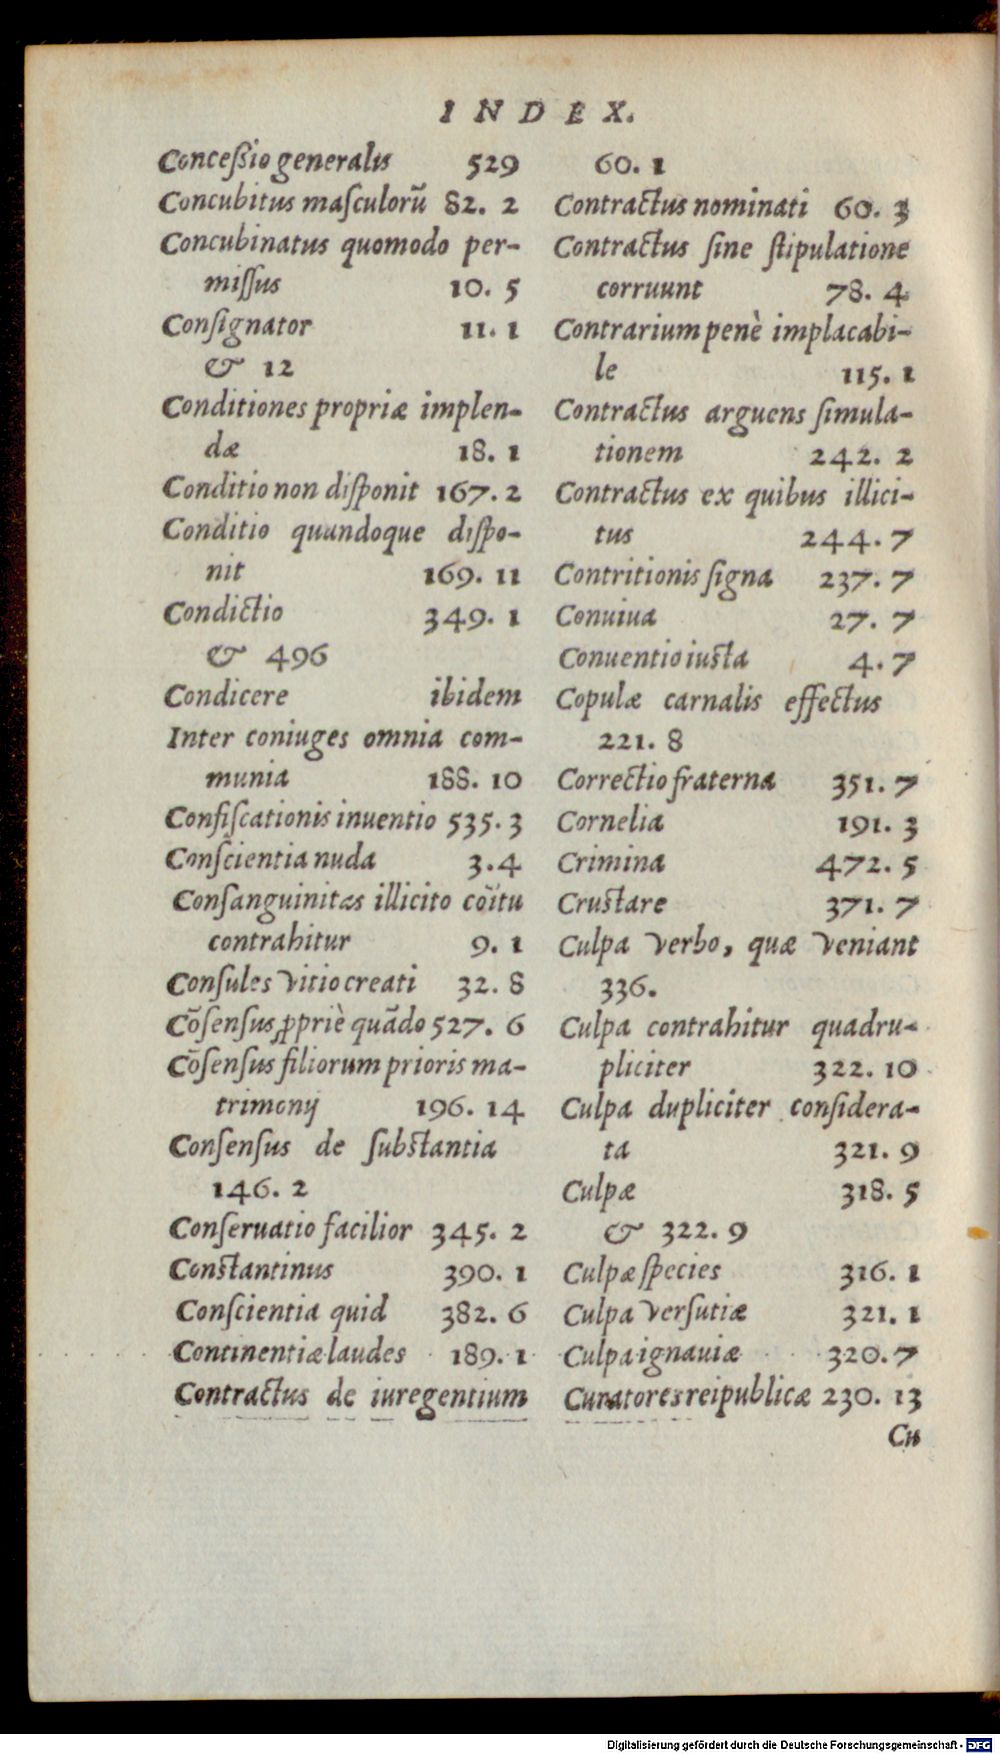 INDEX.
Conceßio generalis 529
Concubitus maſculorũ 82. 2
Concubinatus quomodo per-
miſſus 10. 5
Conſignator 11. 1
& 12
Conditiones propriæ implen-
dæ 18. 1
Conditio non diſponit 167. 2
Conditio quandoque diſpo-
nit 169. 11
Condictio 349. 1
& 496
Condicere ibidem
Inter coniuges omnia com-
munia 188. 10
Confiſcationis inuentio 535. 3
Conſcientia nuda 3. 4
Conſanguinitas illicito coĩtu
contrahitur 9. 1
Conſules vitio creati 32. 8
Cõſenſus ꝓpriè quãdo 527. 6
Cõſenſus filiorum prioris ma-
trimonij 196. 14
Conſenſus de ſubſtantia
146. 2
Conſeruatio facilior 345. 2
Conſtantinus 390. 1
Conſcientia quid 382. 6
Continentiæ laudes 189. 1
Contractus de iure gentium
60. 1
Contractus nominati 60. 3
Contractus ſine ſtipulatione
corruunt 78. 4
Contrarium penè implacabi-
le 115. 1
Contractus arguens ſimula-
tionem 242. 2
Contractus ex quibus illici-
tus 244. 7
Contritionis ſigna 237. 7
Conuiua 27. 7
Conuentio iuſta 4. 7
Copulæ carnalis effectus
221. 8
Correctio fraterna 351. 7
Cornelia 191. 3
Crimina 472. 5
Cruſtare 371. 7
Culpa verbo, quæ veniant
336.
Culpa contrahitur quadru-
pliciter 322. 10
Culpa dupliciter conſidera-
ta 321. 9
Culpæ 318. 5
& 322. 9
Culpæ ſpecies 316. 1
Culpa verſutiæ 321. 1
Culpa ignauiæ 320. 7
Curatores reipublicæ 230. 13
Cu
Digitalisierung gefördert durch die Deutsche Forschungsgemeinschaft - DFG